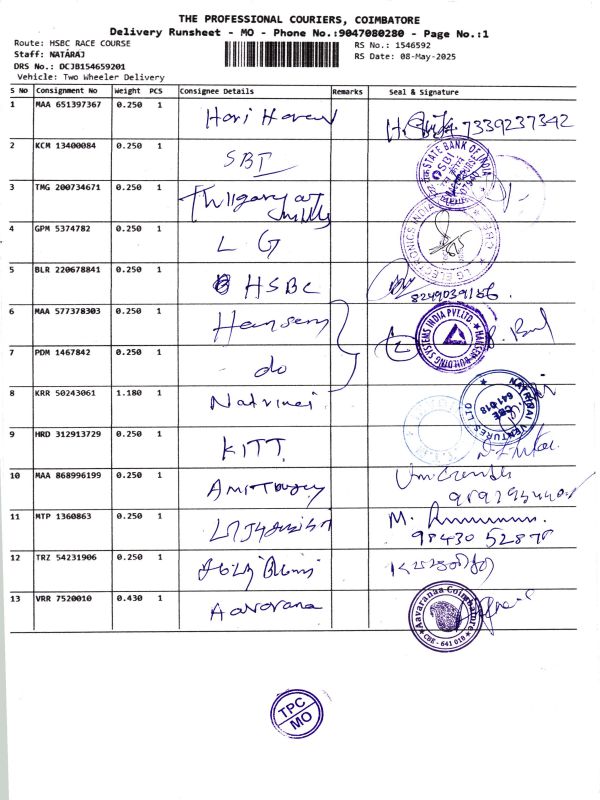 THE PROFESSIONAL COURIERS, COIMBATORE
Delivery Runsheet - MO - Phone No.:9047080280 - Page No.:1
Route: HSBC RACE COURSE
RS No.: 1546592
Staff: NATARAJ
RS Date: 08-May-2025
DRS No.: DCJB154659201
Vehicle: Two Wheeler Delivery
S No Consignment No Weight PCS Consignee Details Remarks Seal & Signature
1 MAA 651397367 0.250 1 Hari Haran 7339237342
2 KCM 13400084 0.250 1 SBI
STATE BANK OF INDIA
SBI
3 TMG 200734671 0.250 1
4 GPM 5374782 0.250 1 L G
LG ELECTRONICS INDIA
CBE
5 BLR 220678841 0.250 1 HSBC
8249039186.
6 MAA 577378303 0.250 1 Hansen
HANSEN BUILDING SYSTEMS INDIA PVT.LTD
7 PDM 1467842 0.250 1 do
8 KRR 50243061 1.180 1 Natrinai
NATRINAI VENTURES LLP
CBE
641 018
9 HRD 312913729 0.250 1 KITT
10 MAA 868996199 0.250 1
11 MTP 1360863 0.250 1 M.
98430 52878
12 TRZ 54231906 0.250 1
13 VRR 7520010 0.430 1 Aavarana
Aavaranaa Coimbatore
CBE - 641 018
TPC
MO